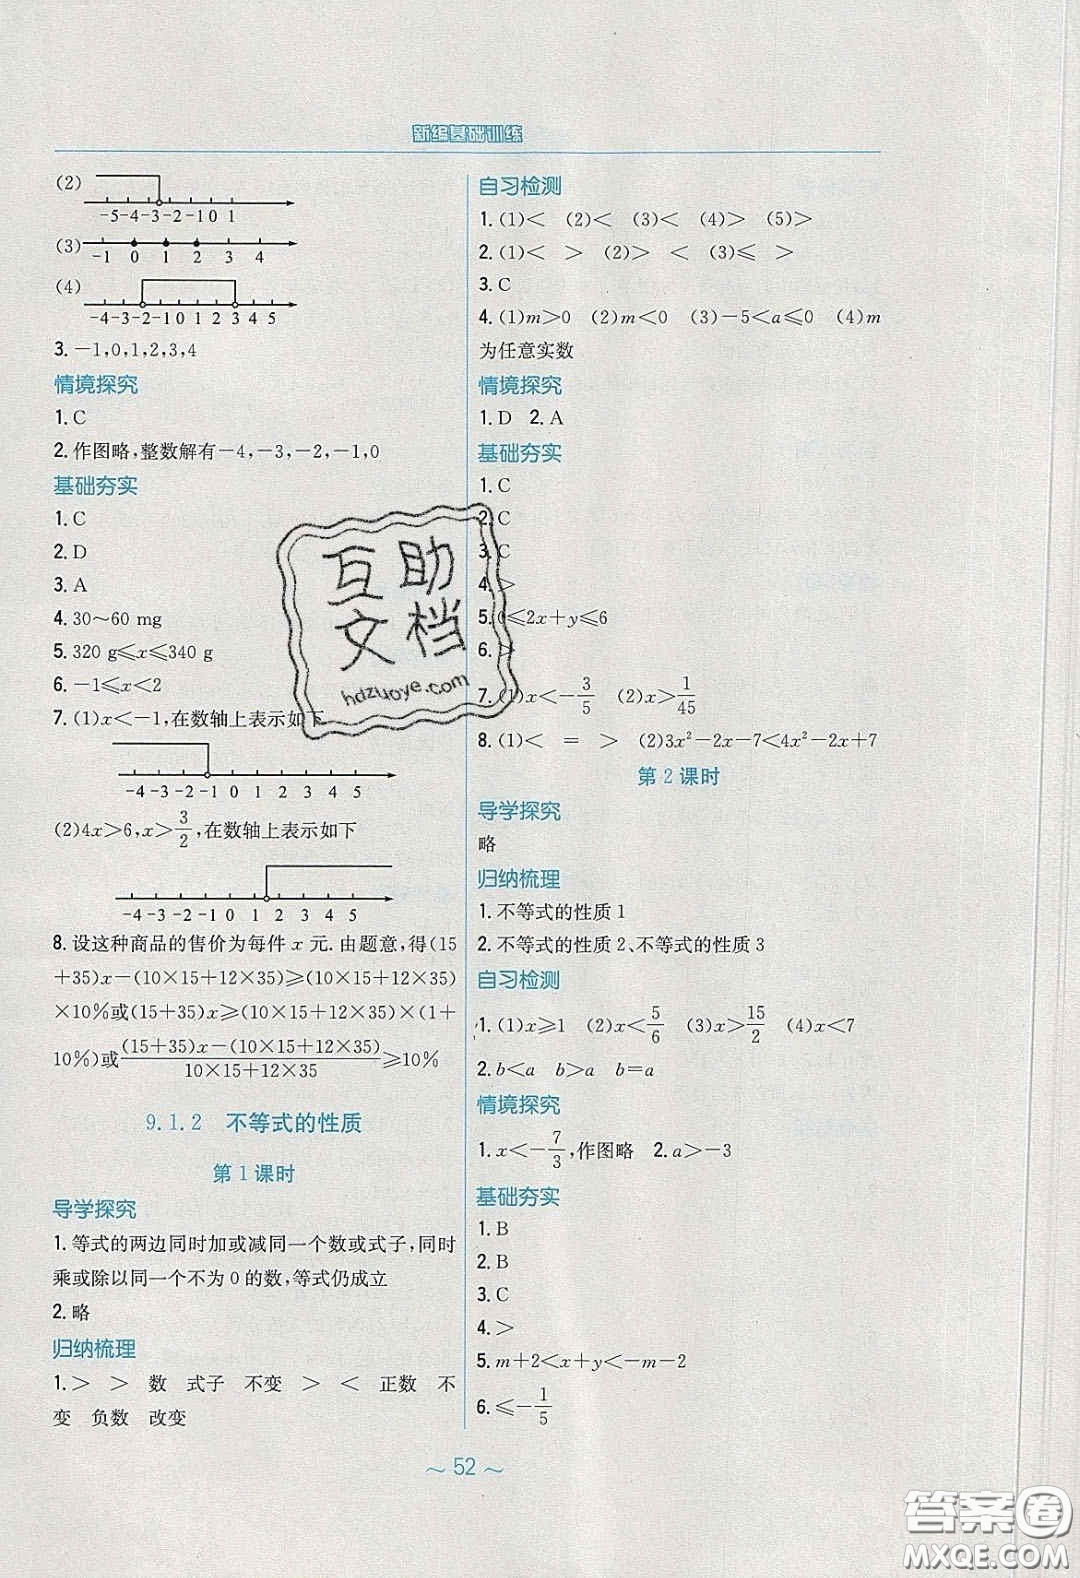 新编基础训练
(2)
-5-4-3-2-10 1
(3)
-1 0 1 2 3 4
(4)
-4-3-2-10 1 2 3 4 5
3. -1,0,1,2,3,4
情境探究
1. C
2. 作图略,整数解有-4,-3,-2,-1,0
基础夯实
1. C
2. D
3. A
4. 30~60 mg
5. 320 g≤x≤340 g
6. -1≤x<2
7. (1)x<-1,在数轴上表示如下
-4 -3 -2 -1 0 1 2 3 4 5
(2)4x>6,x>3/2,在数轴上表示如下
-4 -3 -2 -1 0 1 2 3 4 5
8. 设这种商品的售价为每件 x 元. 由题意,得(15
+35)x-(10×15+12×35)≥(10×15+12×35)
×10%或(15+35)x≥(10×15+12×35)×(1+
10%)或((15+35)x-(10×15+12×35))/(10×15+12×35)≥10%
9.1.2 不等式的性质
第 1 课时
导学探究
1. 等式的两边同时加或减同一个数或式子,同时
乘或除以同一个不为 0 的数,等式仍成立
2. 略
归纳梳理
1. > > 数 式子 不变 > < 正数 不
变 负数 改变
自习检测
1. (1)< (2)< (3)< (4)> (5)>
2. (1)< > (2)> < (3)≤ >
3. C
4. (1)m>0 (2)m<0 (3)-5<a≤0 (4)m
为任意实数
情境探究
1. D 2. A
基础夯实
1. C
2. C
3. C
4. >
5. 0≤2x+y≤6
6. >
7. (1)x<-3/5 (2)x>1/45
8. (1)< = > (2)3x²-2x-7<4x²-2x+7
第 2 课时
导学探究
略
归纳梳理
1. 不等式的性质 1
2. 不等式的性质 2、不等式的性质 3
自习检测
1. (1)x≥1 (2)x<5/6 (3)x>15/2 (4)x<7
2. b<a b>a b=a
情境探究
1. x<-7/3,作图略 2. a>-3
基础夯实
1. B
2. C
3. C
4. >
5. m+2<x+y<-m-2
6. ≤-1/5
~ 52 ~
互助
文档
hdzuoye.com
答案卷
MXQE.COM